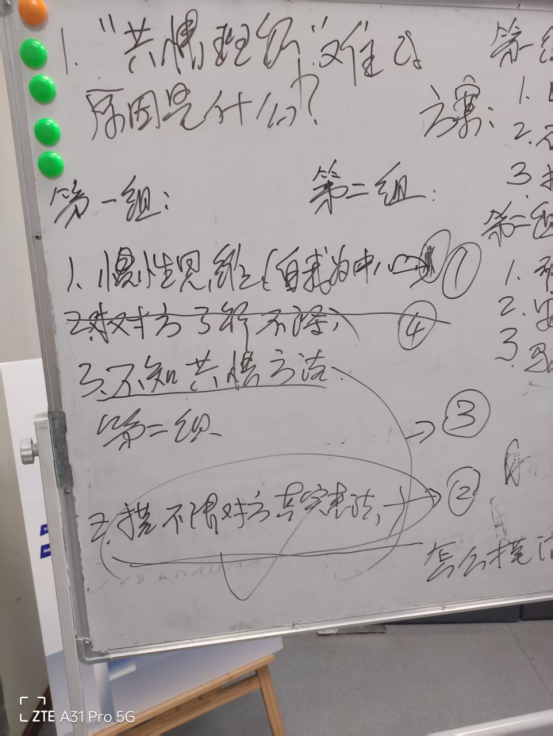 1. "共情理解"难的
原因是什么?
第一组:
第二组:
1. 惯性思维(自我为中心)→ ①
2. 对对方了解不深 ④
3. 不知共情方法
第二组
→ ③
2. 摸不得对方真实想法 → ②
方案:
第一组
1.
2.
3.
第二组
1.
2.
3.
怎么摸
ZTE A31 Pro 5G